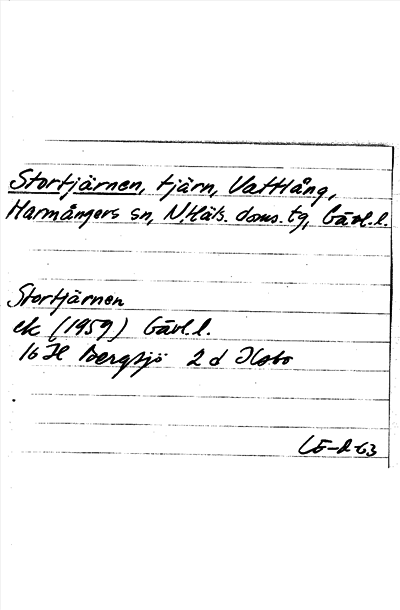 Stortjärnen, tjärn, Vattlång,
Harmångers sn, N.Häls. doms. tg, Gävl.l.
Stortjärnen
ek (1959) Gävl.l.
16 H Bergsjö 2 d Ilsbo